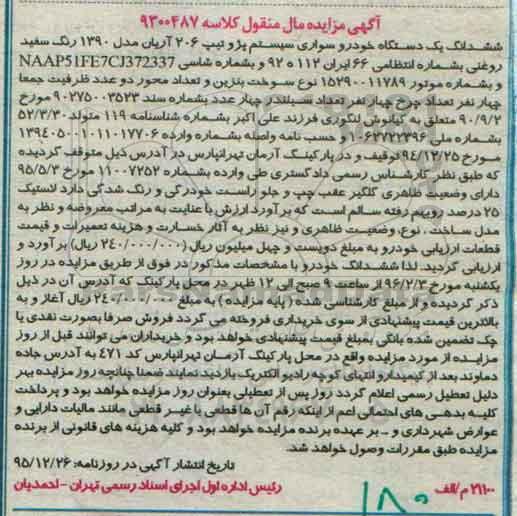 آگهی مزایده مال منقول کلاسه ۹۳۰۰۴۸۷
ششدانگ یک دستگاه خودرو سواری سیستم پژو تیپ ۲۰۶ آریان مدل ۱۳۹۰ رنگ سفید
روغنی بشماره انتظامی ۶۶ ایران ۱۱۲ ه ۹۲ و بشماره شاسی NAAP51FE7CJ372337
و بشماره موتور ۱۵۲۹۰۰۱۱۷۸۹ نوع سوخت بنزین و تعداد محور دو عدد ظرفیت جمعا
چهار نفر تعداد چرخ چهار نفر تعداد سیلندر چهار عدد بشماره سند ۹۰۲۷۵۰۰۳۵۲۳ مورخ
۹۰/۹/۲ متعلق به کیانوش لنگوری فرزند علی اکبر بشماره شناسنامه ۱۱۹ متولد ۵۲/۳/۳۰
بشماره ملی ۱۰۶۲۷۲۲۳۹۶ و حسب نامه واصله بشماره وارده ۱۳۹۴۰۵۰۰۱۰۱۱۰۱۷۷۰۶
مورخ ۹۴/۱۲/۲۵ توقیف و در پارکینگ آرمان تهرانپارس در آدرس ذیل متوقف گردیده
که طبق نظر کارشناس رسمی دادگستری طی وارده بشماره ۱۱۰۰۷۲۵۲ مورخ ۹۵/۵/۳
دارای وضعیت ظاهری گلگیر عقب چپ و جلو راست خوردگی و رنگ شدگی دارد لاستیک
۲۵ درصد رویهم رفته سالم است که برآورد ارزش با عنایت به مراتب معروضه و نظر به
مدل ساخت، نوع، وضعیت ظاهری و نیز نظر به آثار خسارت و هزینه تعمیرات و قیمت
قطعات ارزیابی خودرو به مبلغ دویست و چهل میلیون ریال (۲۴۰/۰۰۰/۰۰۰ ریال) برآورد و
ارزیابی گردید. لذا ششدانگ خودرو با مشخصات مذکور در فوق از طریق مزایده در روز
یکشنبه مورخ ۹۶/۲/۳ از ساعت ۹ صبح الی ۱۲ ظهر در محل پارکینگ که آدرس آن در ذیل
ذکر گردیده و از مبلغ کارشناسی شده (پایه مزایده) به مبلغ ۲۴۰/۰۰۰/۰۰۰ ریال آغاز و به
بالاترین قیمت پیشنهادی از سوی خریداری فروخته می گردد فروش صرفا بصورت نقدی یا
چک تضمین شده بانکی/مبلغ قیمت پیشنهادی خواهد بود و خریداران می توانند قبل از روز
مزایده از مورد مزایده واقع در محل پارکینگ آرمان تهرانپارس کد ۴۷۱ به آدرس جاده
دماوند بعد از کیمیدارو انتهای کوچه رادیو الکتریک بازدید نمایند ضمنا چنانچه روز مزایده بهر
دلیل تعطیل رسمی اعلام گردد روز پس از تعطیلی بعنوان روز مزایده خواهد بود و پرداخت
کلیه بدهی های احتمالی اعم از اینکه رقم آن ها قطعی یا غیر قطعی مانند مالیات دارایی و
عوارض شهرداری و ... بر عهده برنده مزایده خواهد بود و کلیه هزینه های قانونی از برنده
مزایده طبق مقررات وصول خواهد شد.
تاریخ انتشار آگهی در روزنامه: ۹۵/۱۲/۲۶
۲۱۱۰۰ م/الف رئیس اداره اول اجرای اسناد رسمی تهران - احمدیان